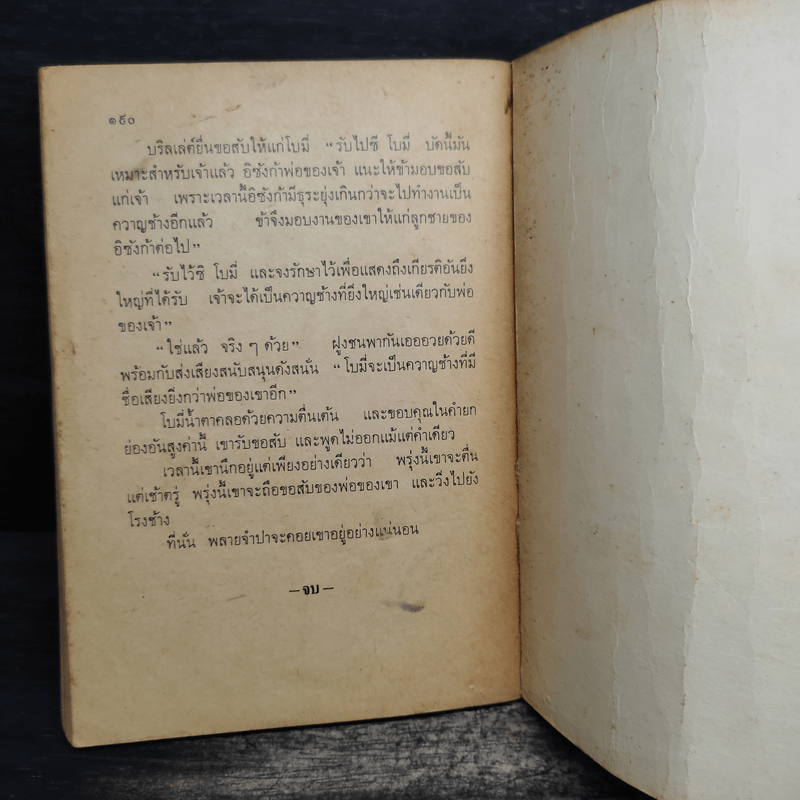 ๑๕๐
บริลเล่ต์ยื่นขอสับให้แก่โบมี่ “รับไปซี โบมี่ บัดนี้มัน
เหมาะสำหรับเจ้าแล้ว อิซังก้าพ่อของเจ้า แนะให้ข้ามอบขอสับ
แก่เจ้า เพราะเวลานี้อิซังก้ามีธุระยุ่งเกินกว่าจะไปทำงานเป็น
ควาญช้างอีกแล้ว ข้าจึงมอบงานของเขาให้แก่ลูกชายของ
อิซังก้าต่อไป”
“รับไว้ซิ โบมี่ และจงรักษาไว้เพื่อแสดงถึงเกียรติอันยิ่ง
ใหญ่ที่ได้รับ เจ้าจะได้เป็นควาญช้างที่ยิ่งใหญ่เช่นเดียวกับพ่อ
ของเจ้า”
“ใช่แล้ว จริง ๆ ด้วย” ฝูงชนพากันเอออวยด้วยดี
พร้อมกับส่งเสียงสนับสนุนดังสนั่น “โบมี่จะเป็นควาญช้างที่มี
ชื่อเสียงยิ่งกว่าพ่อของเขาอีก”
โบมี่น้ำตาคลอด้วยความตื่นเต้น และขอบคุณในคำยก
ย่องอันสูงค่านี้ เขารับขอสับ และพูดไม่ออกแม้แต่คำเดียว
เวลานี้เขานึกอยู่แต่เพียงอย่างเดียวว่า พรุ่งนี้เขาจะตื่น
แต่เช้าตรู่ พรุ่งนี้เขาจะถือขอสับของพ่อของเขา และวิ่งไปยัง
โรงช้าง
ที่นั่น พลายจำปาจะคอยเขาอยู่อย่างแน่นอน
—จบ—